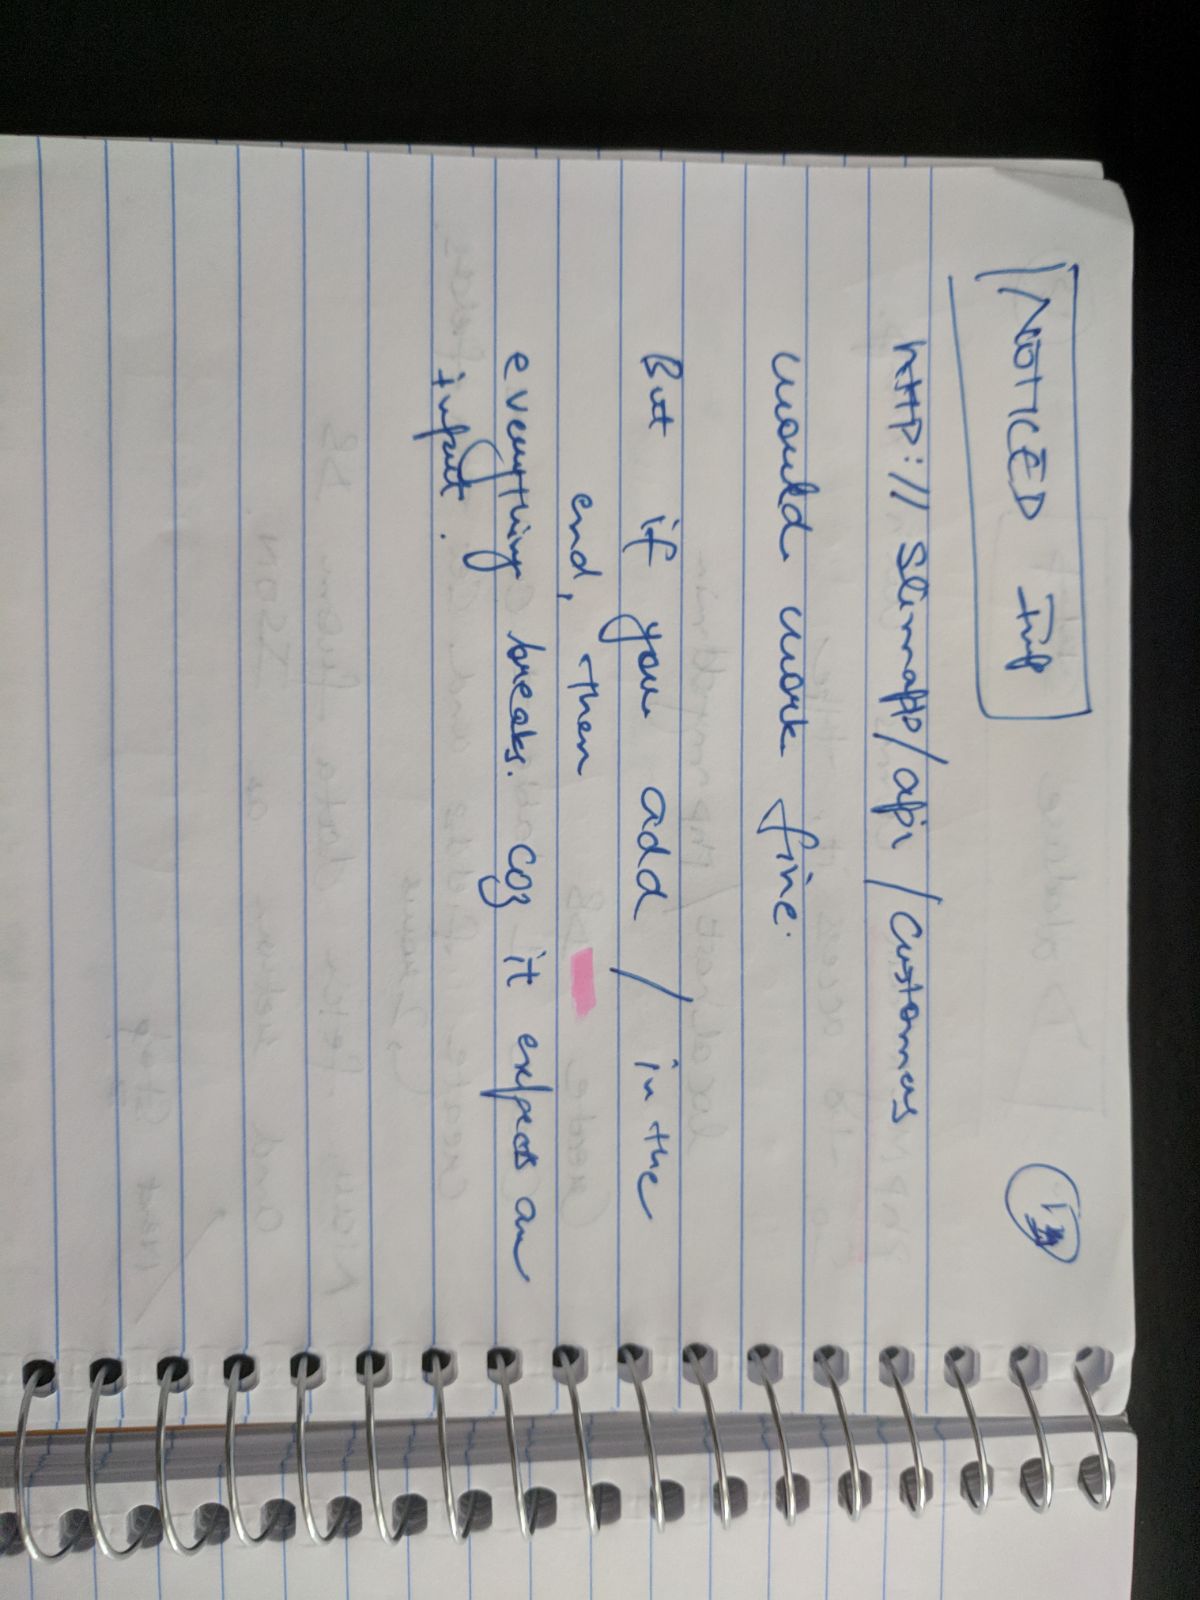 NOTICED Imp
http://slimapp/api/customers
would work fine.
But if you add / in the
end, then
everything breaks. coz it expects an
input.